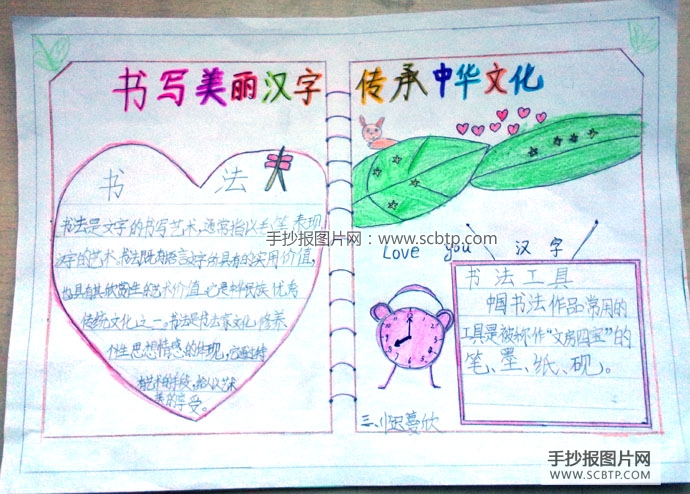 书写美丽汉字 传承中华文化
书 法
书法是文字的书写艺术，通常指以毛笔表现
汉字的艺术。书法既有语言文字的具有的实用价值，
也具有其欣赏性的艺术价值。它是中华民族优秀
传统文化之一。书法是书法家文化，修养
个性思想情感的体现，它通过
艺术的手段，给人以艺术
美的享受。
手抄报图片网：www.scbtp.com
Love you 汉字
书法工具
中国书法作品常用的
工具是被称作“文房四宝”的
笔、墨、纸、砚。
三、1 迟蔓欣
手抄报图片网
WWW.SCBTP.COM